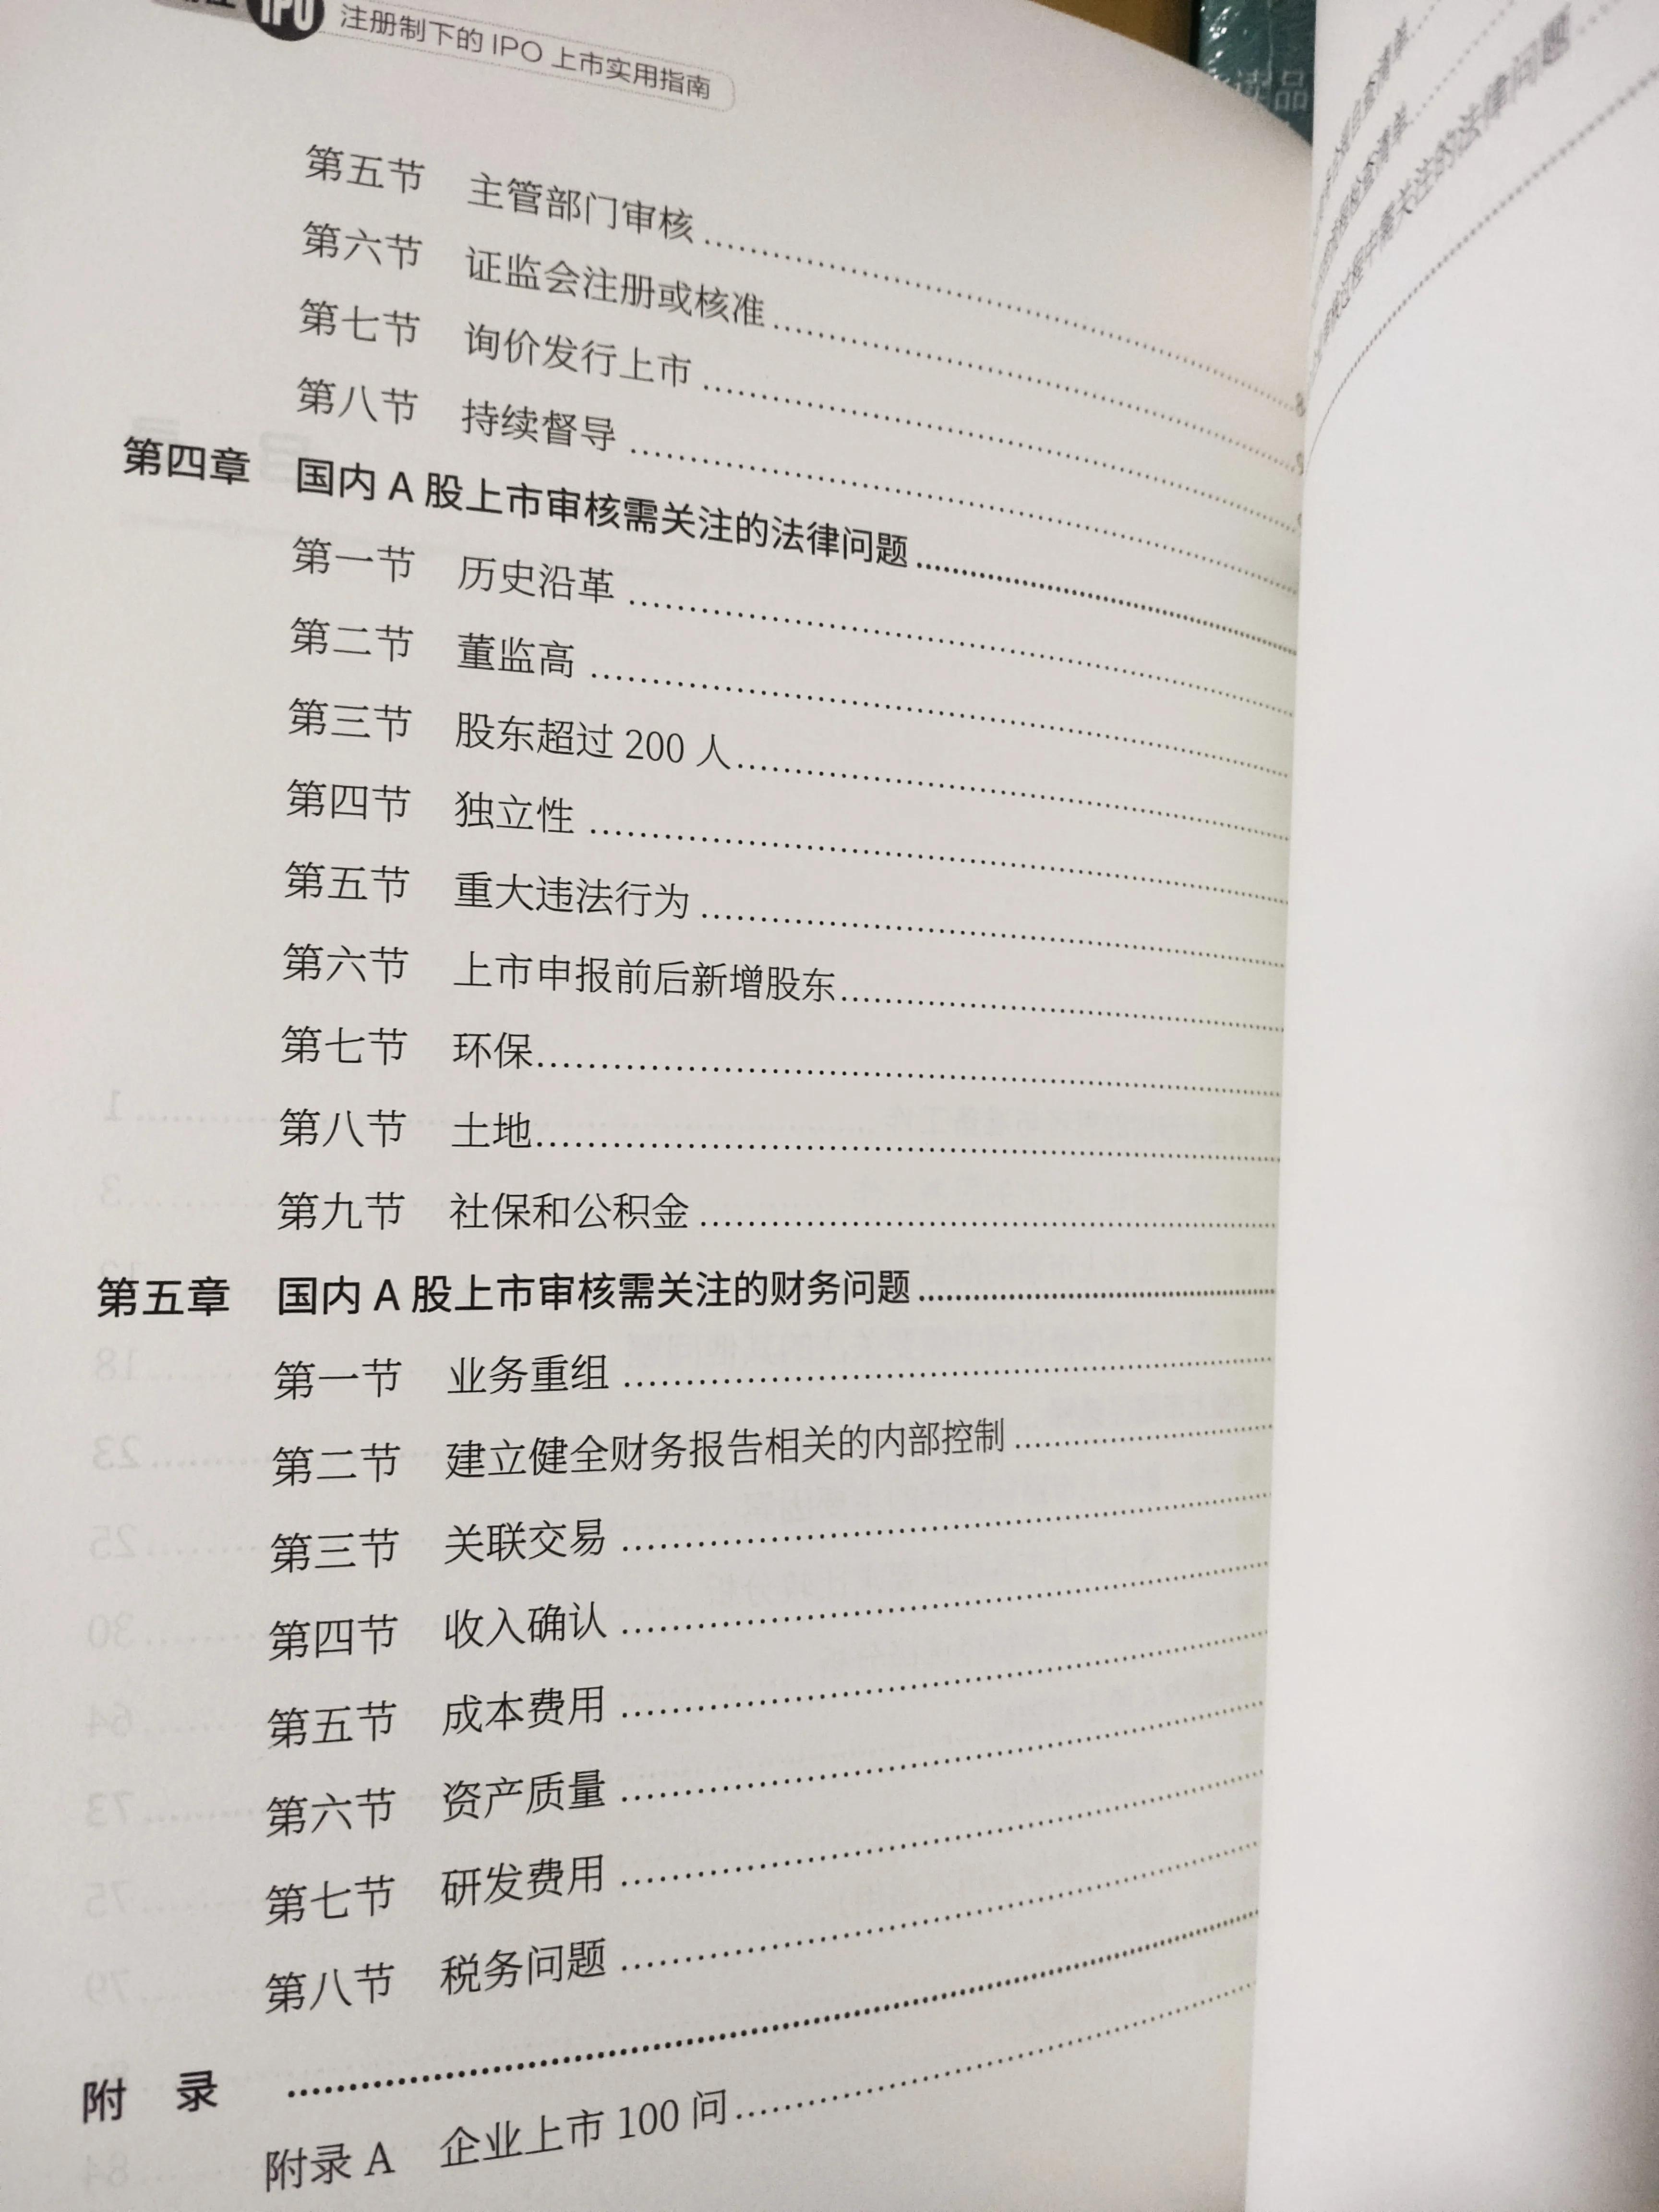 IPO 注册制下的 IPO 上市实用指南
第五节 主管部门审核
第六节 证监会注册或核准
第七节 询价发行上市
第八节 持续督导
第四章 国内 A 股上市审核需关注的法律问题
第一节 历史沿革
第二节 董监高
第三节 股东超过 200 人
第四节 独立性
第五节 重大违法行为
第六节 上市申报前后新增股东
第七节 环保
第八节 土地
第九节 社保和公积金
第五章 国内 A 股上市审核需关注的财务问题
第一节 业务重组
第二节 建立健全财务报告相关的内部控制
第三节 关联交易
第四节 收入确认
第五节 成本费用
第六节 资产质量
第七节 研发费用
第八节 税务问题
附 录
附录 A 企业上市 100 问
中需关注的法律问题